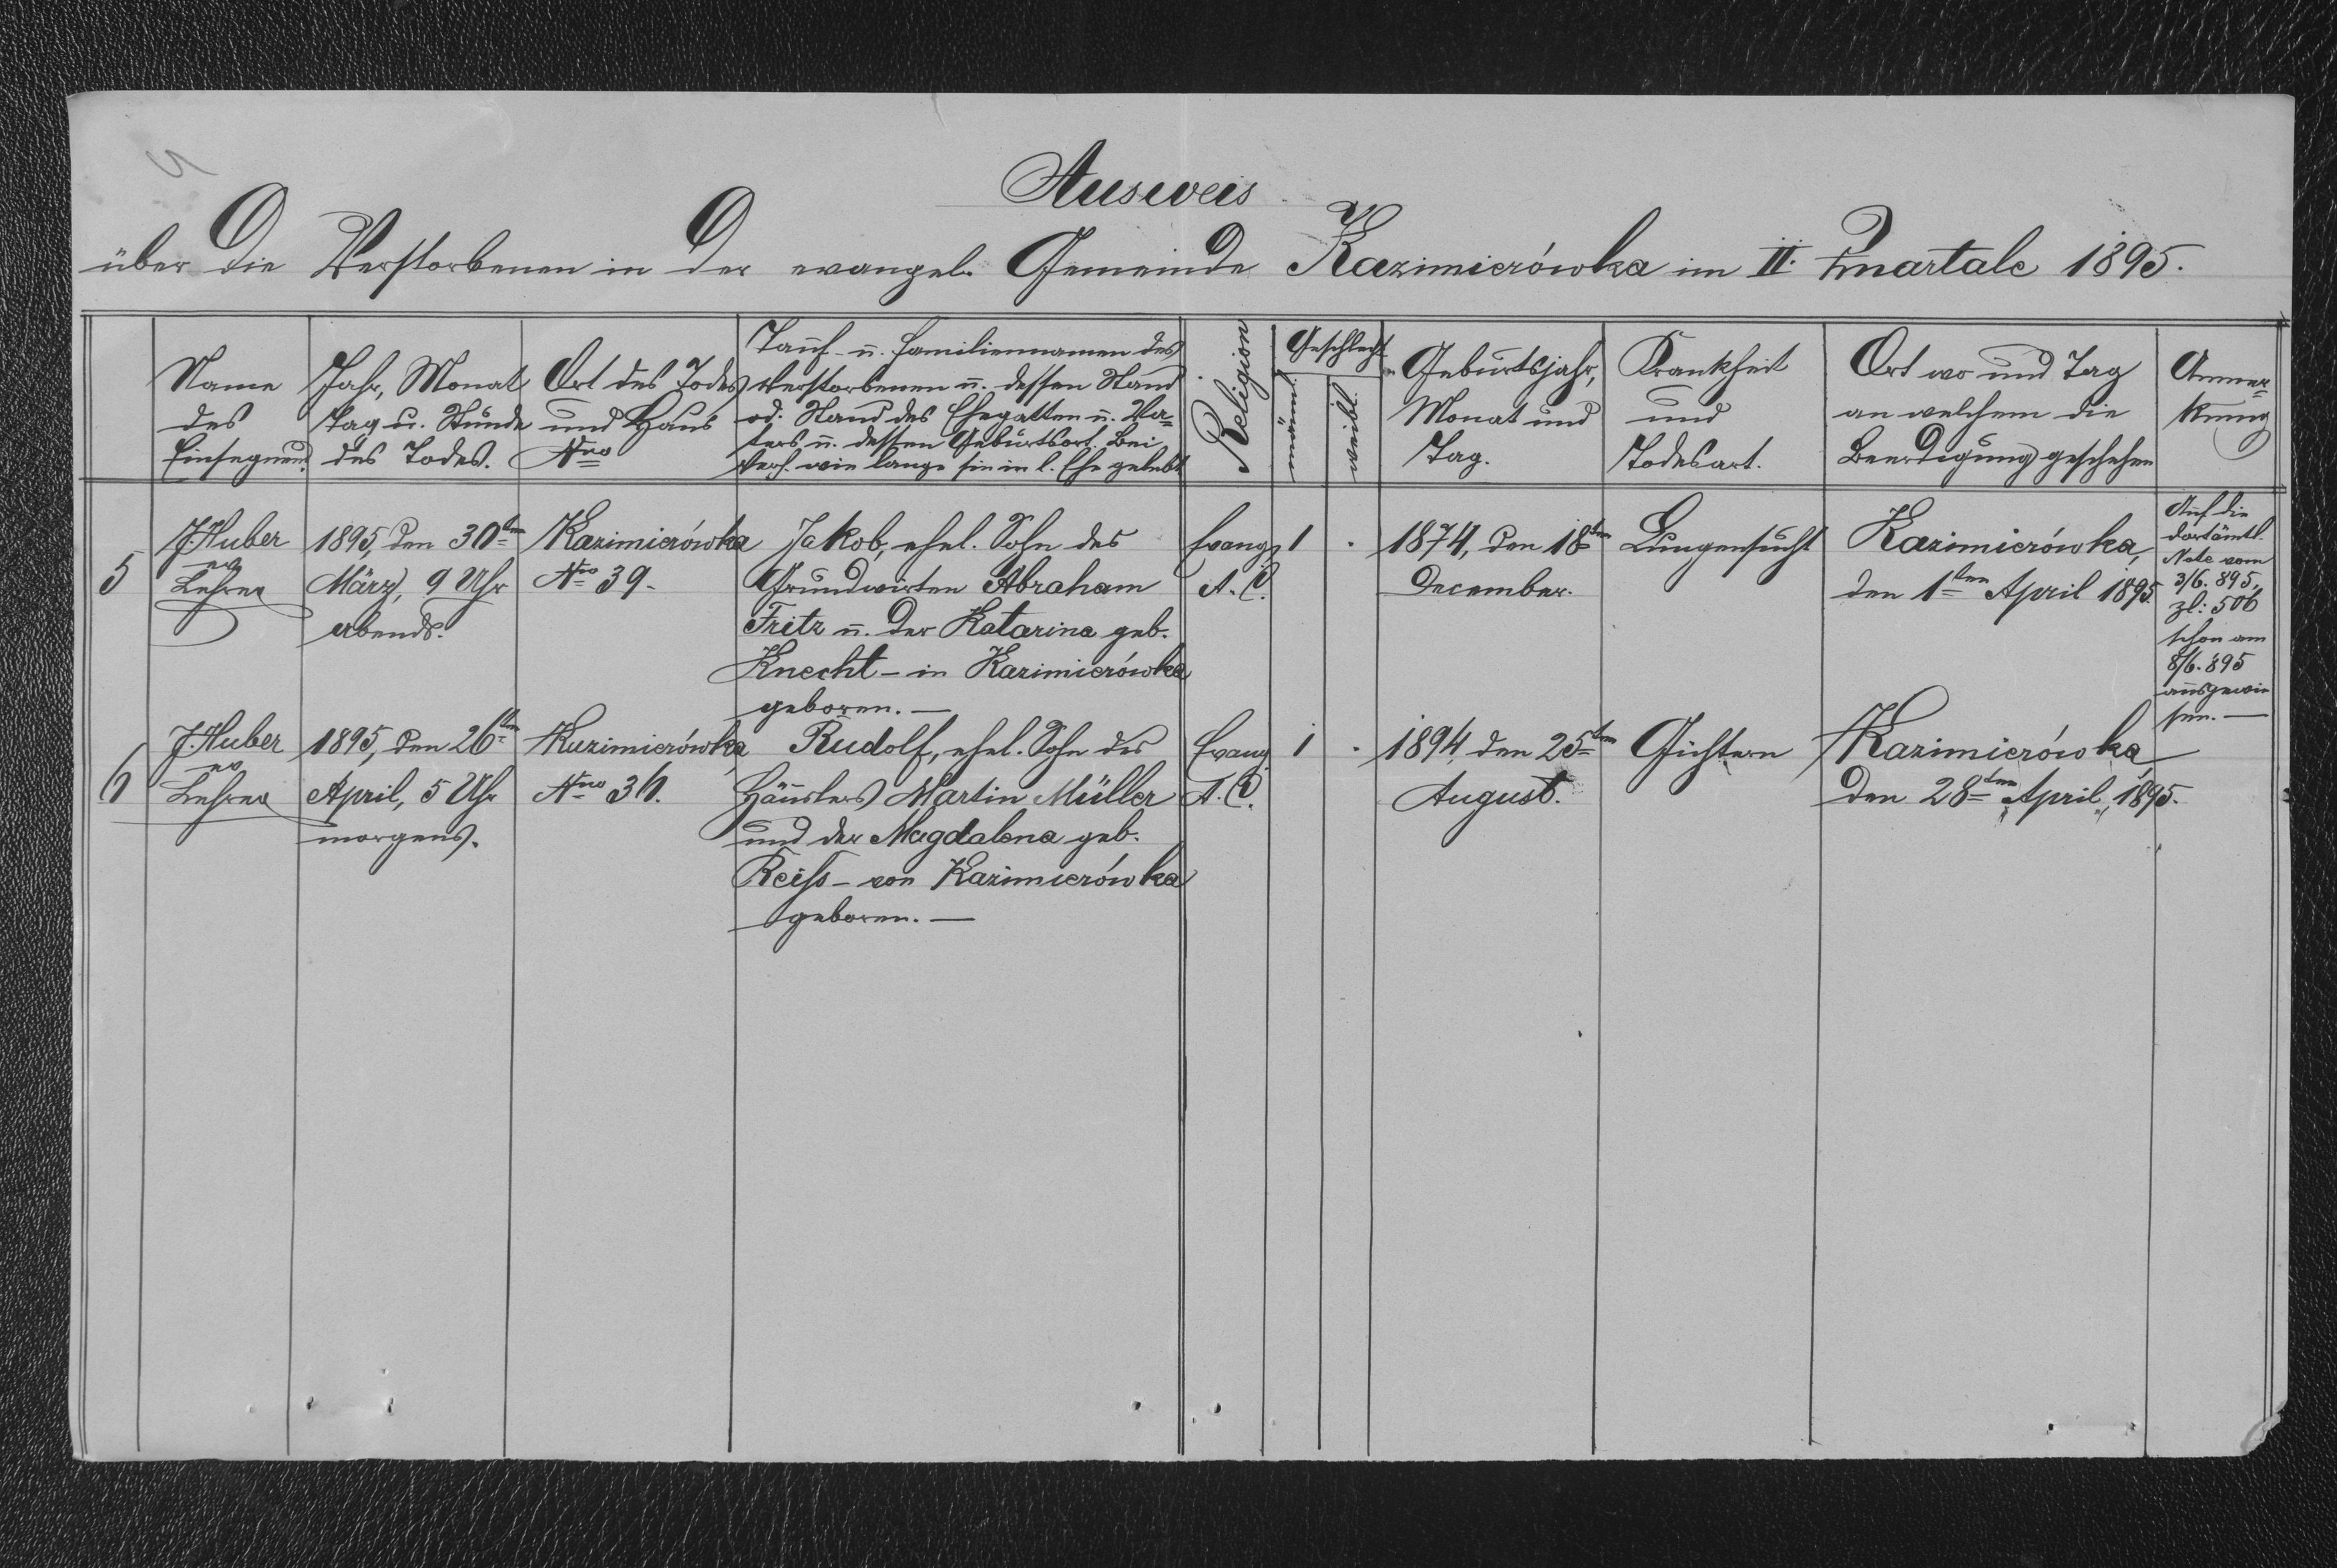 Ausweis
über die Verstorbenen in der evangel. Gemeinde Kazimierówka im II. Quartale 1895.
Name
des
Einsegnend.
Jahr, Monat
Tag u. Stunde
des Todes.
Ort des Todes
und Haus
Nro
Tauf- u. Familiennamen des
Verstorbenen u. dessen Stand
od. Stand des Ehegatten u. Va-
ters u. dessen Geburtsort. Bei
Verh. wie lange sie in l. Ehe gelebt
Religion
Geschlecht
männl.
weibl.
Geburtsjahr,
Monat und
Tag.
Krankheit
und
Todesart.
Ort wo und Tag
an welchem die
Beerdigung geschehen
Anmer-
kung
5
J. Huber
Lehrer
1895, den 30ten
März, 9 Uhr
abends.
Kazimierówka
Nro 39.
Jakob, ehel. Sohn des
Grundwirten Abraham
Fritz u. der Katarina geb.
Knecht - in Kazimierówka
geboren. —
Evang.
A. C.
1
.
1874, den 18ten
December.
Lungensucht
Kazimierówka,
den 1ten April 1895.
Auf die
dortämtl.
Note vom
3/6. 895,
zl: 506
schon am
8/6. 895
ausgewie
sen. —
6
J. Huber
Lehrer
1895, den 26ten
April, 5 Uhr
morgens.
Kazimierówka
Nro 36.
Rudolf, ehel. Sohn des
Häuslers Martin Müller
und der Magdalena geb.
Reiss - von Kazimierówka
geboren. —
Evang.
A. C.
1
.
1894, den 25ten
August.
Gichtern
Kazimierówka,
den 28ten April, 1895.